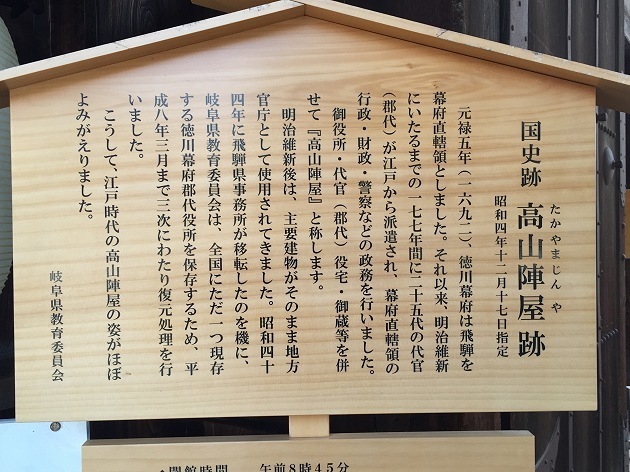 国史跡 高山陣屋跡
たかやまじんや
昭和四年十二月十七日指定
元禄五年（一六九二）、徳川幕府は飛騨を
幕府直轄領としました。それ以来、明治維新
にいたるまでの一七七年間に二十五代の代官
（郡代）が江戸から派遣され、幕府直轄領の
行政・財政・警察などの政務を行いました。
御役所・代官（郡代）役宅・御蔵等を併
せて『高山陣屋』と称します。
明治維新後は、主要建物がそのまま地方
官庁として使用されてきました。昭和四十
四年に飛騨県事務所が移転したのを機に、
岐阜県教育委員会は、全国にただ一つ現存
する徳川幕府郡代役所を保存するため、平
成八年三月まで三次にわたり復元処理を行
いました。
こうして、江戸時代の高山陣屋の姿がほぼ
よみがえりました。
岐阜県教育委員会
開館時間 午前8時45分